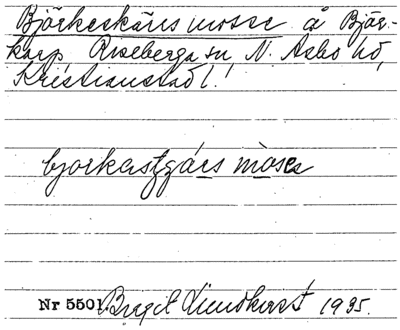 Björkeskärs mosse å Björ-
karp Riseberga sn N. Åsbo hd,
Kristianstad l.
bjorkasʒgárs mòsea
Nr 5501 Birgit Lindkvist 1935.